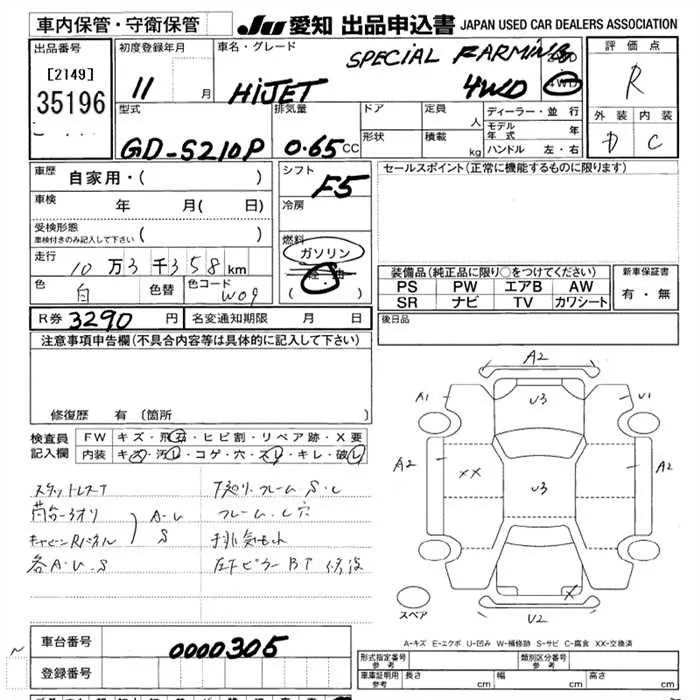 車内保管・守衛保管
JU 愛知 出品申込書 JAPAN USED CAR DEALERS ASSOCIATION
出品番号
[2149]
35196
初度登録年月
11 月
車名・グレード
SPECIAL FARMING
HiJET 4WD
4WD
評価点
R
外装 内装
D C
型式
GD-S210P
排気量
0.65 CC
ドア
形状
定員 人
積載 kg
ディーラー・並行
モデル年式 年
ハンドル 左・右
車歴
自家用・( )
車検
年 月( 日)
受検形態
車検付きのみ記入して下さい ( )
走行
10 万 3 千 358 km
色 白 色替 色コード W09
シフト F5
冷房
燃料
ガソリン
軽・油
( )
セールスポイント(正常に機能するものに限ります)
装備品(純正品に限り○をつけてください)
PS PW エアB AW
SR ナビ TV カワシート
新車保証書
有・無
R券 3290 円 名変通知期限 月 日
後日品
注意事項申告欄(不具合内容等は具体的に記入して下さい)
修復歴 有 (箇所
検査員記入欄
FW キズ・飛石・ヒビ割・リペア跡・X要
内装 キズ・汚レ・コゲ・穴・スレ・キレ・破レ
スタットレスT
荷台・アオリ
キャビンRパネル
A・U
S
各A・U・S
下廻リ・フレームS・C
フレーム・C穴
排気もれ
左下ピラーBT 修複
A2
A1
U3
U1
A2
XX
U3
A2
X
U2
スペア
A-キズ E-エクボ U-凹み W-補修跡 S-サビ C-腐食 XX-交換済
車台番号 0000305
登録番号
形式指定番号 参考
類別区分番号 参考
車庫証明用 参考 長さ cm 幅 cm 高さ cm